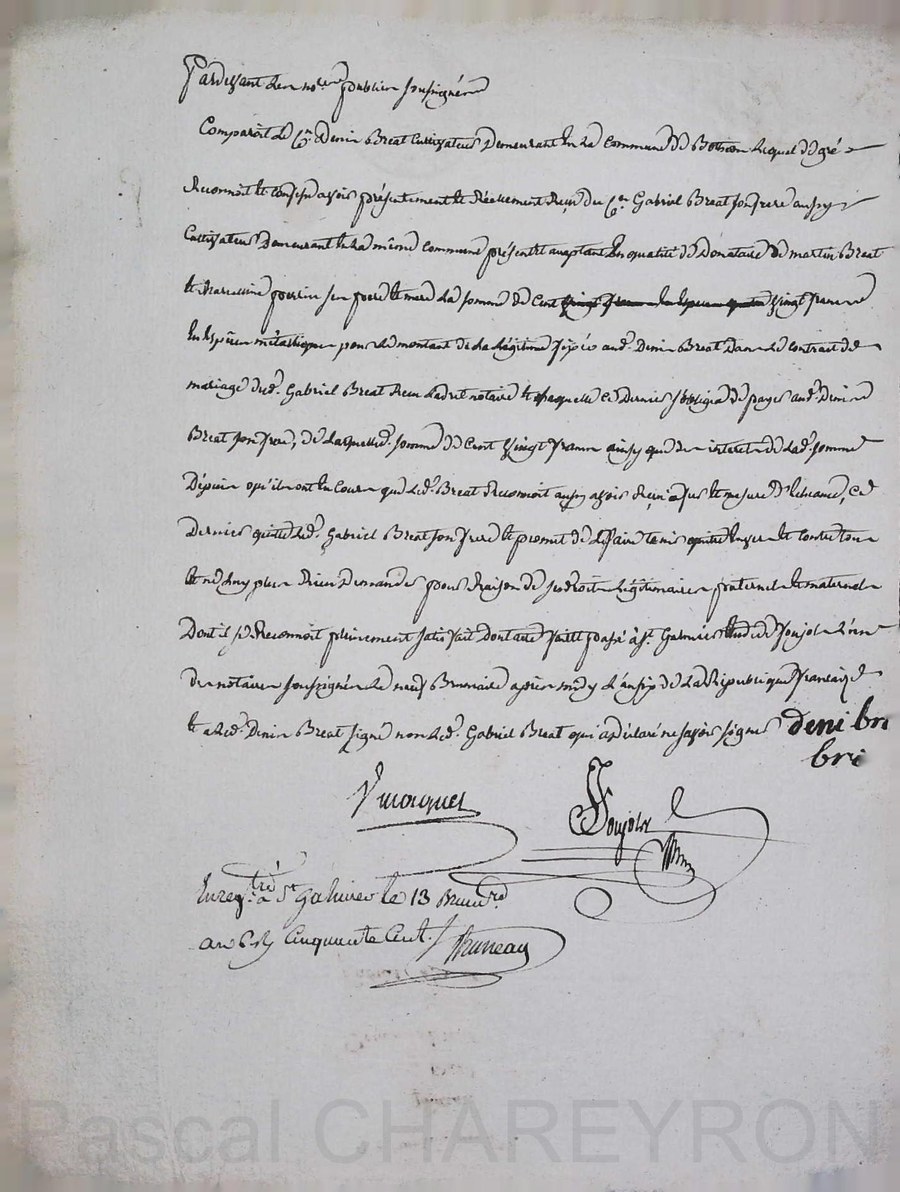 Pardevant les no.res publics soussignés
Comparoit le C.en Denis Breat Cultivateur Demeurant en la commune de lequel de gré
Reconnoit et confesse avoir présentement et Réellement Reçu du C.en Gabriel Breat son frere aussy
Cultivateur Demeurant en la même commune présent et acceptant en qualité de Donataire de martin Breat
et ses pere et mere la somme de Cent vingt francs
En Espèces métallique pour le montant de la légitime fixée aud. Denis Breat Dans le contrat de
mariage dud. Gabriel Breat Reçu notaire et laquelle ce Dernier s'obligea de payer aud. Denis
Breat son frere, de laquelle d. somme de Cent vingt francs ainsy que des interets de lad. somme
Depuis qu'ils ont eu cours que led. Breat Reconnoit aussy avoir Reçu a fur et mesure d'echeance, ce
Dernier quitte led. Gabriel Breat son frere et promet de le faire tenir quitte envers et contre tous
et ne luy plus Rien Demander pour Raison de ses droits légitimaires paternels et maternels
Dont il se Reconnoit pleinement satisfait Dont acte fait et passé à S.t Galmier Etude de Foujols l'un
des notaires soussignés le neuf Brumaire après midy l'an six de la République française
et a led. Denis Breat signé non led. Gabriel Breat qui a déclaré ne savoir signer deni bri
bri
Foujols
Enreg.tré à S.t Galmier le 13 Brum.re
an 6 R. Cinquante Cent. Bruneau
Pascal CHAREYRON